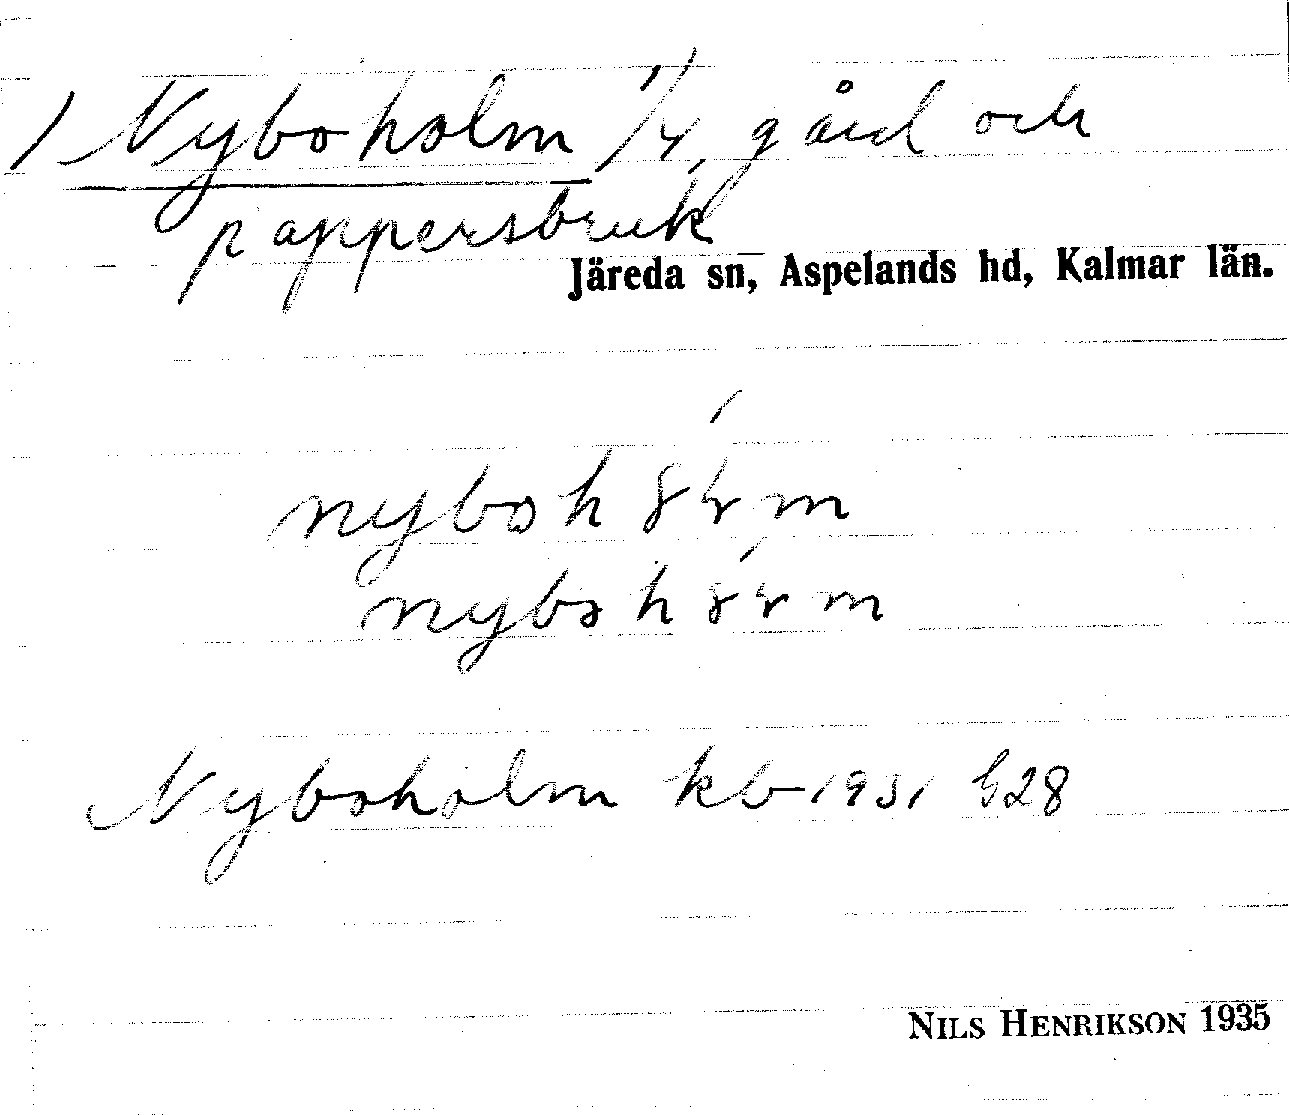 1) Nyboholm 1/4, gård och
pappersbruk
Järeda sn, Aspelands hd, Kalmar län.
Nyboholm kb 1931 G28
NILS HENRIKSON 1935